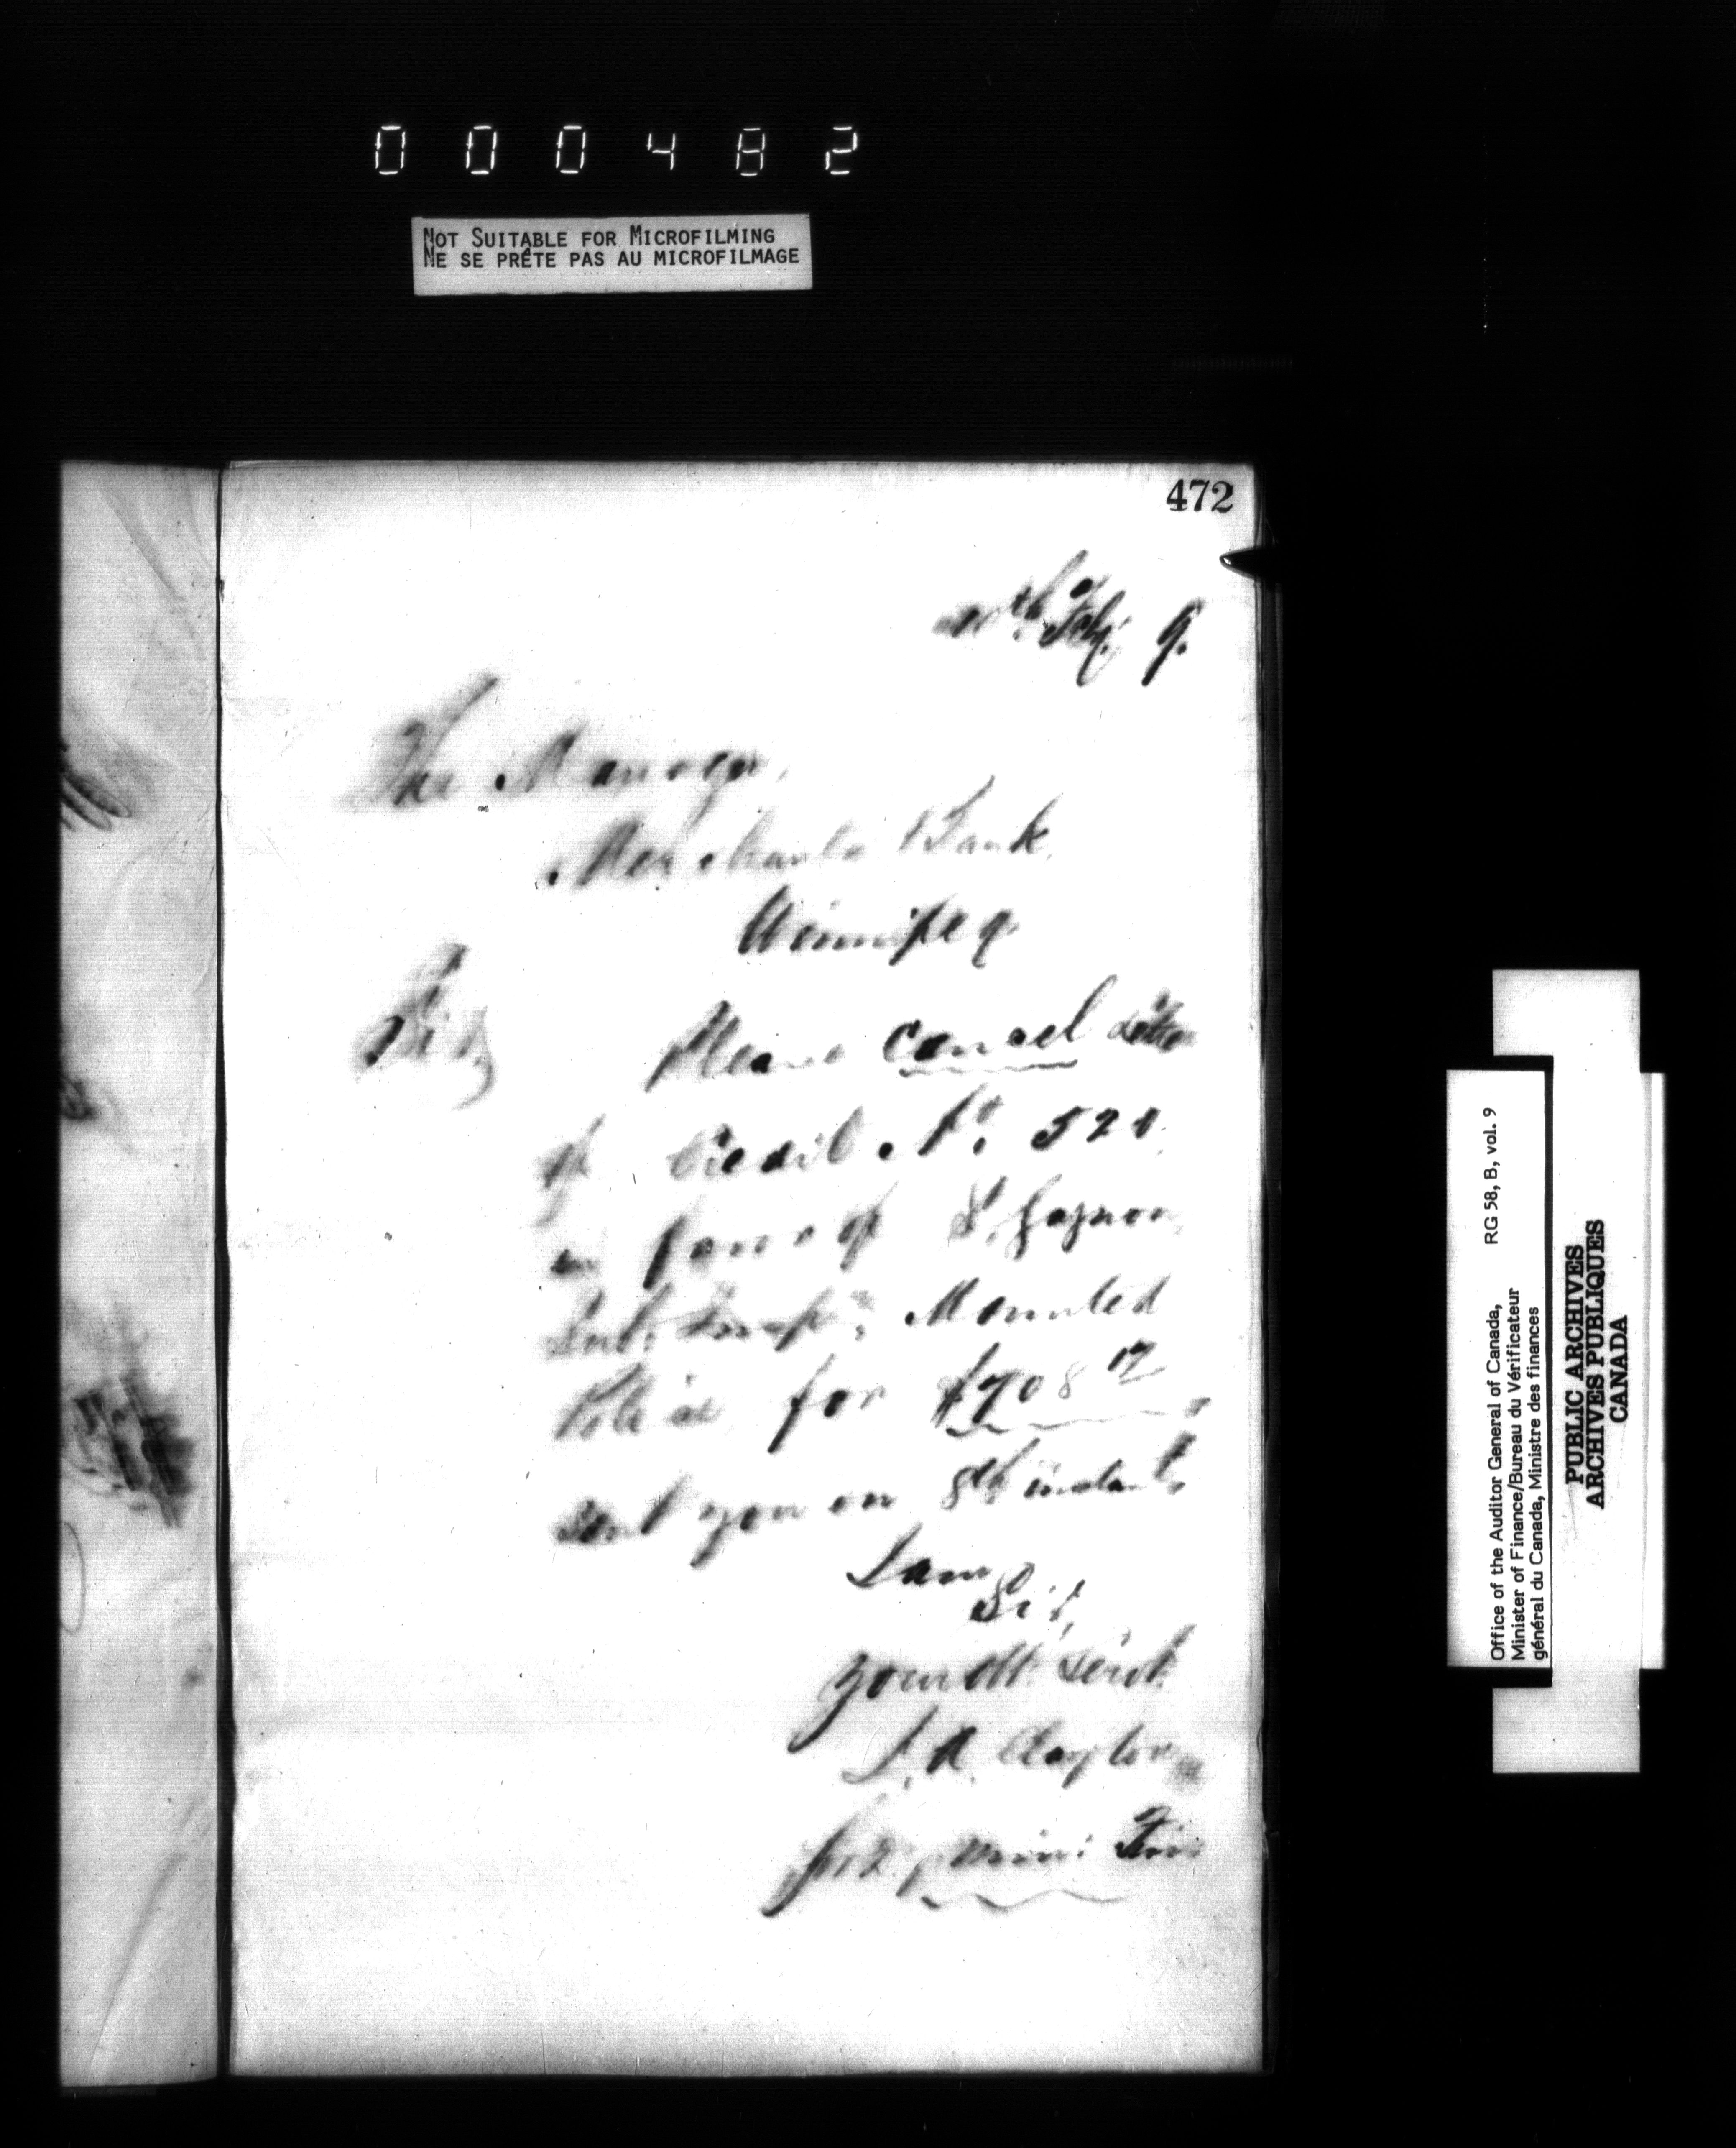 000482
NOT SUITABLE FOR MICROFILMING
NE SE PRÊTE PAS AU MICROFILMAGE
472
10th Feby. 9.
The Manager,
Merchants Bank,
Winnipeg.
Sir,
Please cancel Letter
of Credit No. 521
in favor of S. Gagnon,
Sub. Insp: Mounted
Police for $708 17
sent you on 8th instant.
I am
Sir,
your obt. servt.
Clayton
for Min: Fin
Office of the Auditor General of Canada, RG 58, B, vol. 9
Minister of Finance/Bureau du Vérificateur
général du Canada, Ministre des finances
PUBLIC ARCHIVES
ARCHIVES PUBLIQUES
CANADA